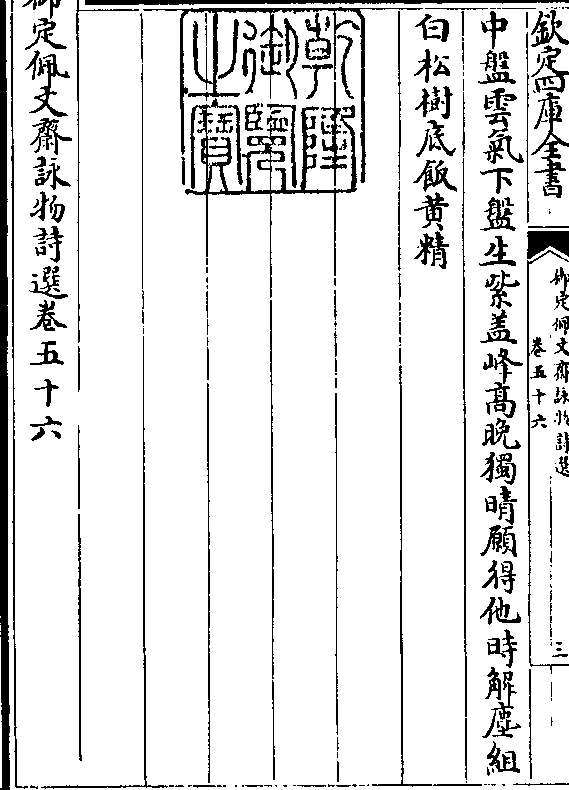 欽定四庫全書
御定佩文齋詠物詩選
卷五十六
三
中盤雲氣下盤生紫盖峰高晚獨晴願得他時解塵組
白松樹底飯黄精
乾隆御覽之寶
御定佩文齋詠物詩選卷五十六